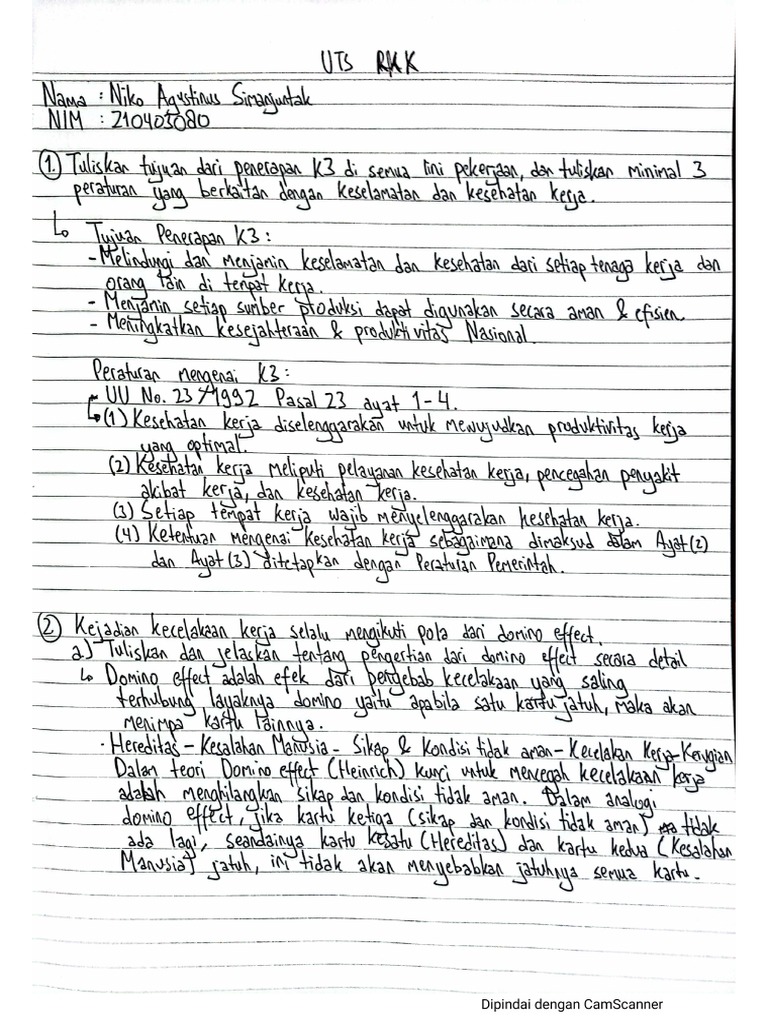 UTS RKK
Nama : Niko Agustinus Simanjuntak
NIM : 210403080
1. Tuliskan tujuan dari penerapan K3 di semua lini pekerjaan, dan tuliskan minimal 3
peraturan yang berkaitan dengan keselamatan dan kesehatan kerja.
↳ Tujuan Penerapan K3 :
- Melindungi dan menjamin keselamatan dan kesehatan dari setiap tenaga kerja dan
orang lain di tempat kerja.
- Menjamin setiap sumber produksi dapat digunakan secara aman & efisien
- Meningkatkan kesejahteraan & produktivitas Nasional
Peraturan mengenai K3 :
- UU No. 23/1992 Pasal 23 ayat 1-4.
↳ (1) Kesehatan kerja diselenggarakan untuk mewujudkan produktivitas kerja
yang optimal.
(2) Kesehatan kerja meliputi pelayanan kesehatan kerja, pencegahan penyakit
akibat kerja, dan kesehatan kerja.
(3) Setiap tempat kerja wajib menyelenggarakan kesehatan kerja.
(4) Ketentuan mengenai kesehatan kerja sebagaimana dimaksud dalam Ayat (2)
dan Ayat (3) ditetapkan dengan Peraturan Pemerintah.
2. Kejadian kecelakaan kerja selalu mengikuti pola dari domino effect.
a.) Tuliskan dan jelaskan tentang pengertian dari domino effect secara detail
↳ Domino effect adalah efek dari pengebab kecelakaan yang saling
terhubung layaknya domino yaitu apabila satu kartu jatuh, maka akan
menimpa kartu lainnya.
· Hereditas - Kesalahan Manusia - Sikap & Kondisi tidak aman - Kecelakan Kerja - Kerugian
Dalam teori Domino effect (Heinrich) kunci untuk mencegah kecelakaan kerja
adalah menghilangkan sikap dan kondisi tidak aman. Dalam analogi
domino effect, jika kartu ketiga (sikap dan kondisi tidak aman) tidak
ada lagi, seandainya kartu kesatu (Hereditas) dan kartu kedua (Kesalahan
Manusia) jatuh, ini tidak akan menyebabkan jatuhnya semua kartu.
Dipindai dengan CamScanner